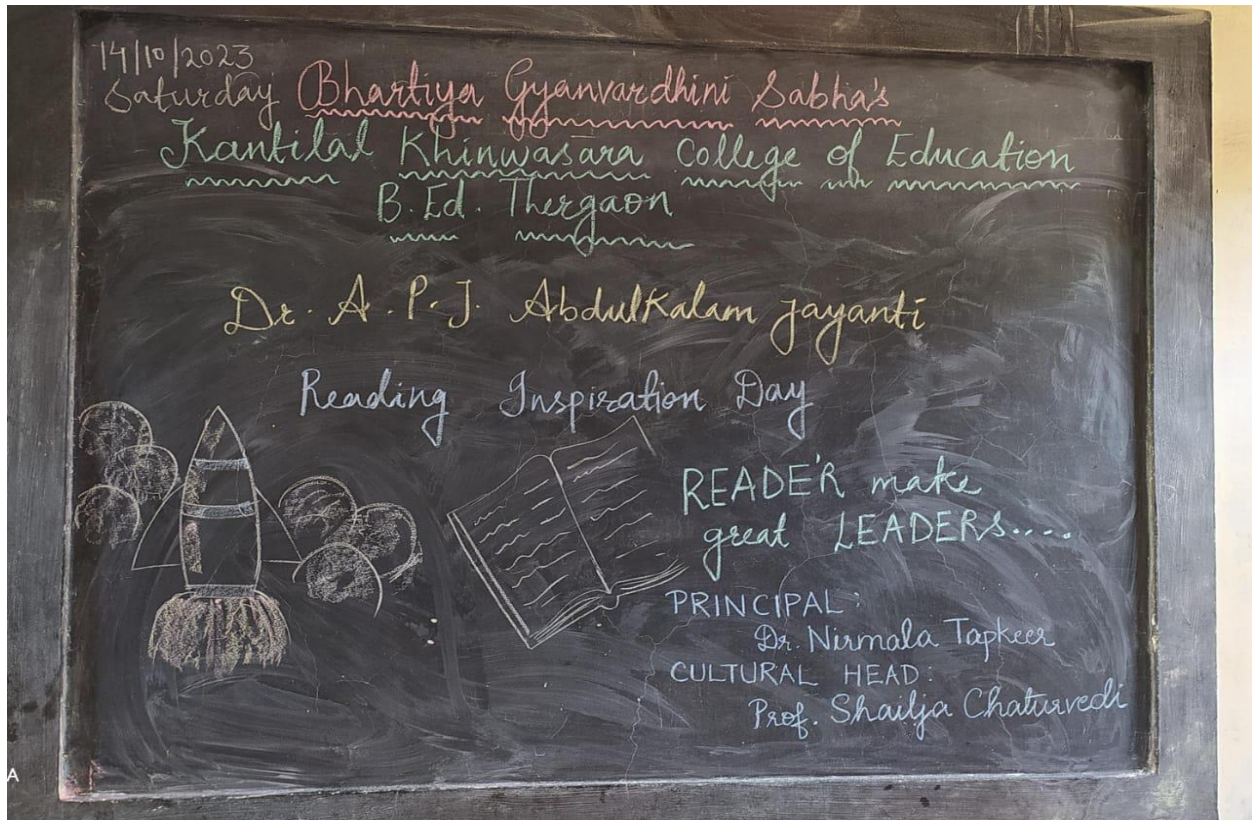 14/10/2023
Saturday Bhartiya Gyanvardhini Sabha's
Kantilal Khinwasara College of Education
B.Ed. Thergaon
Dr. A.P.J. AbdulKalam Jayanti
Reading Inspiration Day
READE'R make
great LEADERS....
PRINCIPAL:
Dr. Nirmala Tapkeer
CULTURAL HEAD:
Prof. Shailja Chaturvedi
A